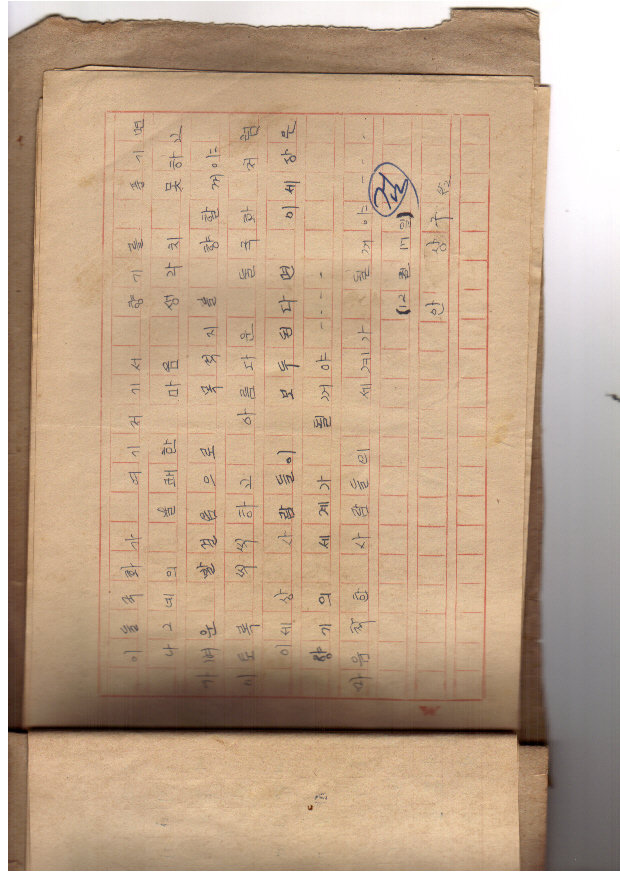 이 들국화가 여기저기서 향기를 풍기면
나그네의 불쾌한 마음 생각치 못하고
가벼운 발걸음으로 목적지를 향할꺼야
이토록 씩씩하고 아름다운 들국화 처럼
이세상 사람들이 모두된다면 이세상은
향기의 세계가 될꺼야 ----
마음 착한 사람들의 세계가 될꺼야 ---
(12월 17일) 검
안 상구